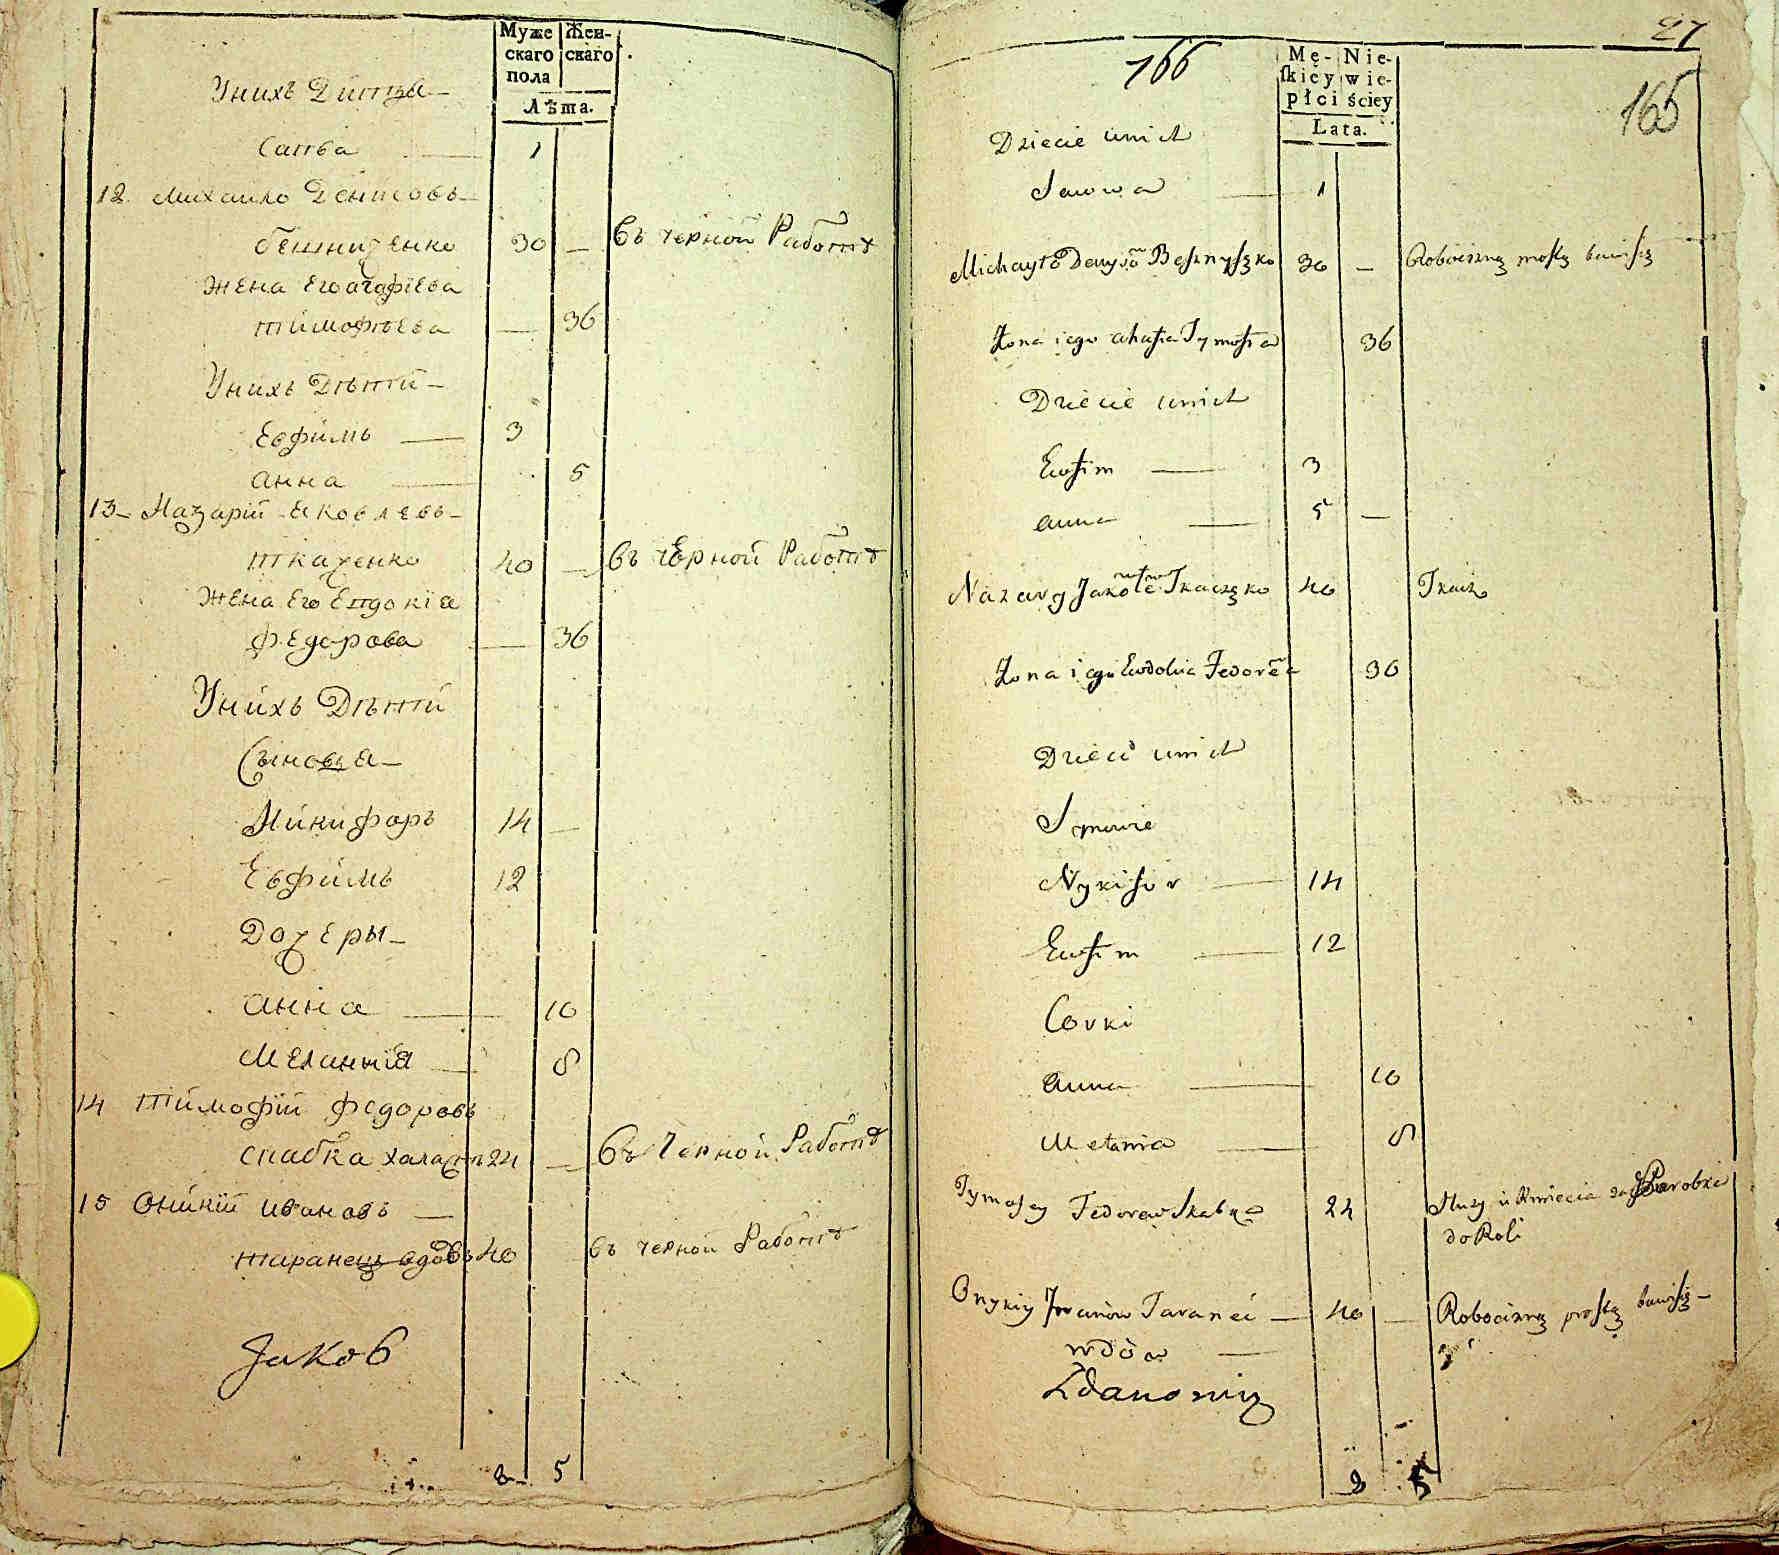 Муже Жен-
скаго скаго
пола
Лѣта.
У нихъ Дитя
Савва 1
12 Михайло Денисовъ
Бешниченко 30 — Въ черной Работѣ
Жена Его агафіева
тимофѣева — 36
У нихъ Дѣти
Евфимъ — 3
анна — 5
13 Назарій Яковлевъ
ткаченко 40 — въ чЕрной Работѣ
Жена Его Евдокіа
федорова — 36
У нихъ Дѣти
Сыновья
Никифоръ 14 —
Евфимъ 12
Дочеры
анна — 10
Меланиіа — 8
14 тимофій федоровъ
24 — Въ Черной Работѣ
15 Оникій ивановъ —
таранец вдовъ 40 въ черной Работѣ
Jakob
8 5
27
166
165
Mę- Nie-
skiey wie-
płci ściey
Lata.
Dziecie unich
Sawwa — 1
Michayło Denysō Besznyszko 30 — Robocizną prostą bawi się
Żona iego ahafia Tymofia 36
Dziecie unich
Ewfim — 3
anna — 5 —
Nazary Jakolē Tkaczęko 40 Tkacz
Żona iego Ewdokia Fedorēa 36
Dzieci unich
Synowie
Nykifor — 14
Ewfim — 12
Corki
anna — 10
Melania — 8
Tymofey Fedorow Skabka 24 Służy u Kmiecia za Parobka
do Roli
Onykiy Jwanow Taraneć — 40 — Robocizną prostą bawi się —
wdow —
Zdanowicz
8 5